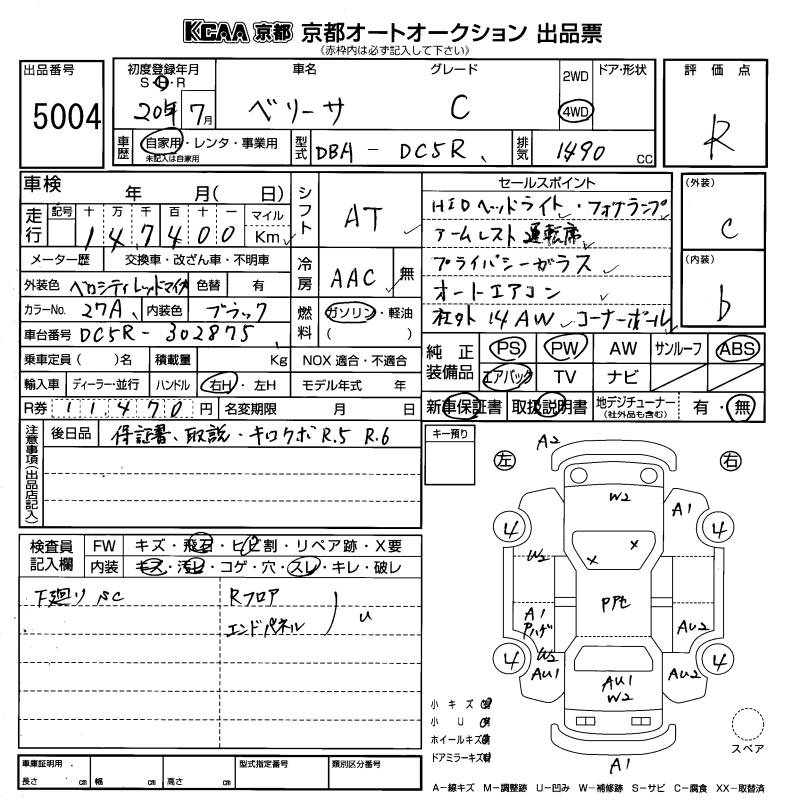 KCAA 京都 京都オートオークション 出品票
(赤枠内は必ず記入して下さい)
出品番号 初度登録年月 車名 グレード 2WD ドア・形状 評価点
S・H・R
5004 20年 7月 ベリーサ C 4WD R
車歴 自家用・レンタ・事業用 型式 DBA - DC5R 排気 1490 CC
未記入は自家用
車検 年 月( 日) シフト AT セールスポイント (外装)
走行 記号 十 万 千 百 十 一 マイル HIDヘッドライト・フォグランプ C
147400 Km アームレスト 運転席
メーター歴 交換車・改ざん車・不明車 冷房 AAC 無 プライバシーガラス (内装)
外装色 ベロシティレッドマイカ 色替 有 オートエアコン D
カラーNo. 27A 内装色 ブラック 燃料 ガソリン・軽油 社外14AW コーナーポール
車台番号 DC5R-302875 ( )
乗車定員( )名 積載量 Kg NOX 適合・不適合 純正装備品 PS PW AW サンルーフ ABS
輸入車 ディーラー・並行 ハンドル 右H・左H モデル年式 年 エアバック TV ナビ
R券 11,470円 名変期限 月 日 新車保証書 取扱説明書 地デジチューナー(社外品も含む) 有・無
注意事項(出品店記入) 後日品 保証書、取説・キロクボ R.5 R.6 キー預り
A2
左 右
検査員記入欄 FW キズ・飛石・ヒビ割・リペア跡・X要
内装 キズ・汚レ・コゲ・穴・スレ・キレ・破レ
下廻りSC Rフロア
エンドパネル U
W2 A1
4 4
W2 X X
Pアセ
A1 Pハゲ AU2
W2
4 4
AU1 AU1 W2 AU2
小キズ
小U
ホイールキズ
ドアミラーキズ
A1
スペア
車庫証明用 型式指定番号 類別区分番号
長さ cm 幅 cm 高さ cm
A-線キズ M-調整跡 U-凹み W-補修跡 S-サビ C-腐食 XX-取替済